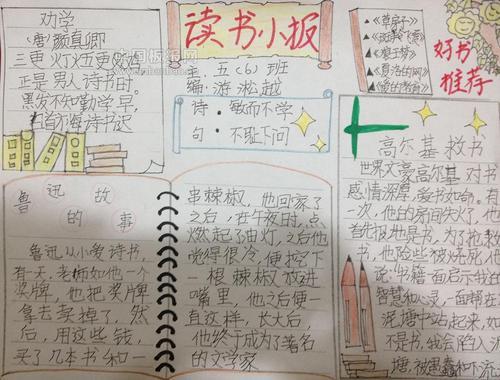 劝学
(唐)颜真卿
三更灯火五更鸡
正是男人读书时。
黑发不知勤学早,
白首方悔读书迟
读书小报
主:五(6)班
编:游淞越
诗:敏而不学
句:不耻下问
《草房子》
《狼王梦》
《夏洛的网》
《爱的教育》
好书
推荐
鲁迅故
的事
鲁迅从小爱读书,
有天,老师如他一个
奖牌,他把奖牌
拿去卖掉了,然
后,用这些钱,
买了几本书和一
串辣椒,他回家了
之后,在午夜时,点
燃起了油灯,之后他
觉得很冷,便挖下
一根辣椒放进
嘴里,他之后便一
直这样,长大后
他终于成为了著名
的文学家
高尔基救书
世界文豪高尔基对书
感情深厚,爱书如命。有
一次,他的房间失火了,他
首先抱地是书,为了抢救
书,他险些被烧死,他
说:"书籍一面启示我的
智慧和心灵,一面帮在
泥塘中站起来,如
不是书,我会陷入泥
塘,被愚蠢和下流